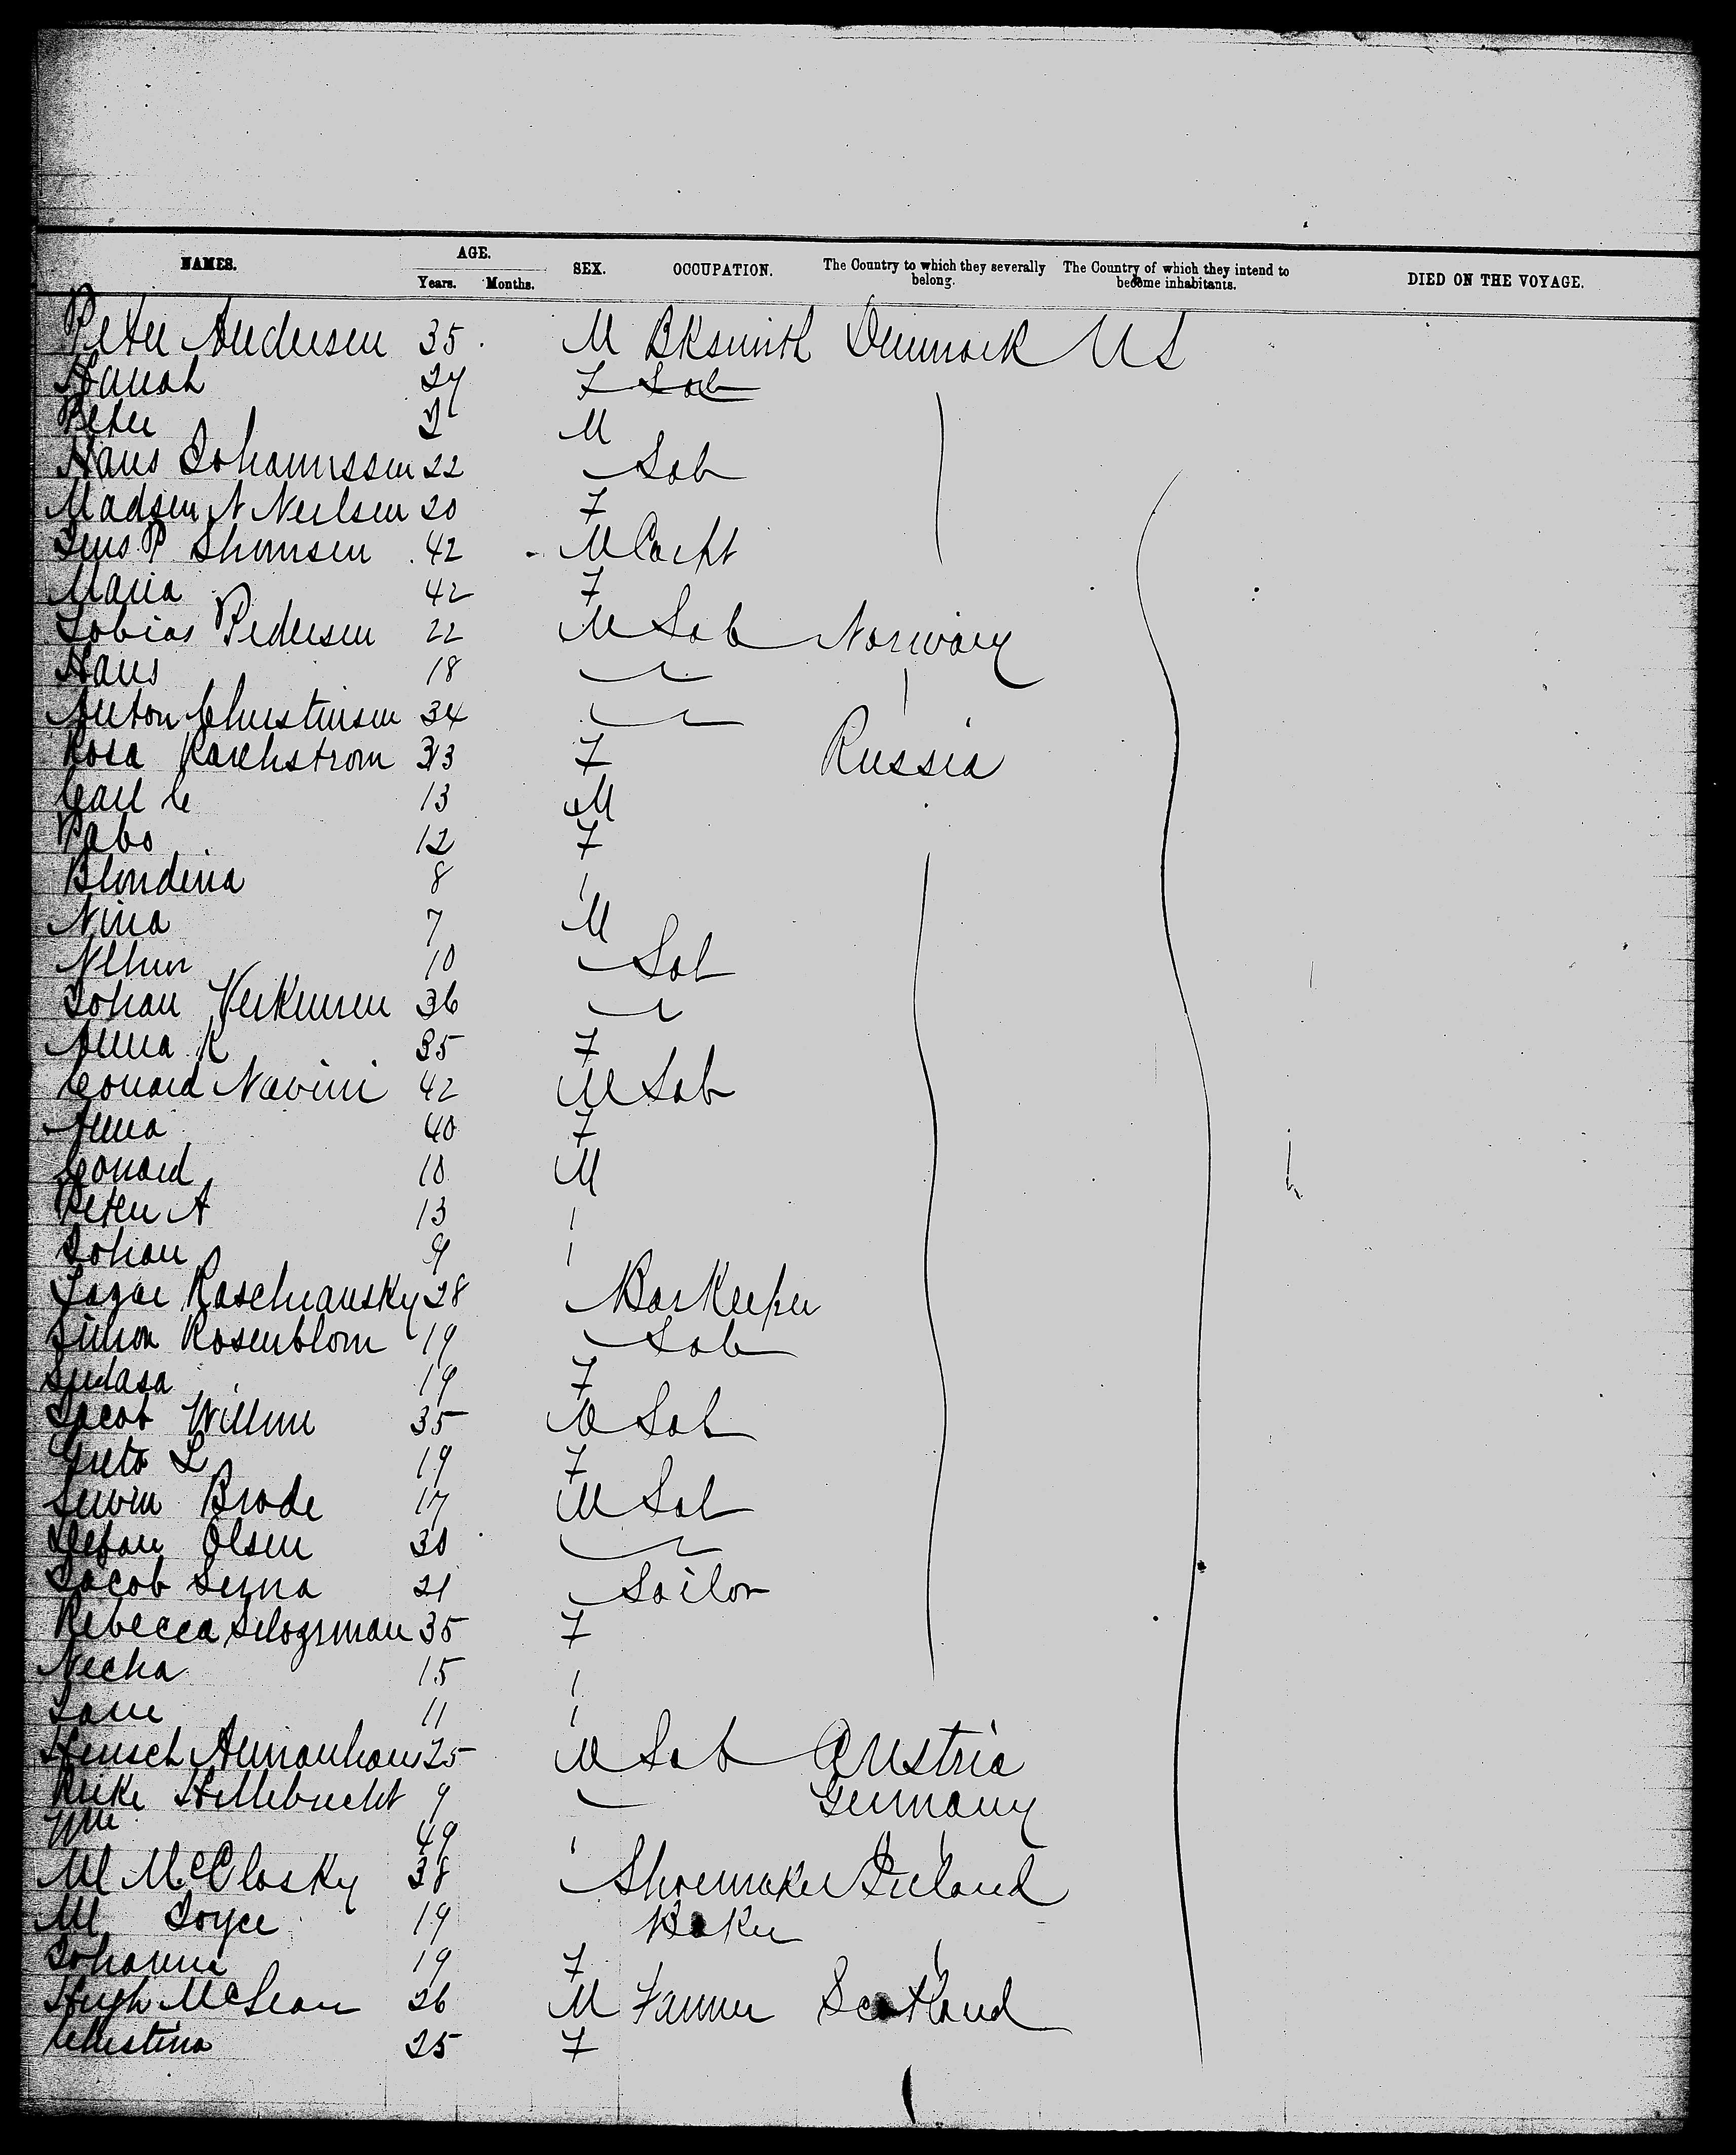 NAMES. AGE. Years. Months. SEX. OCCUPATION. The Country to which they severally belong. The Country of which they intend to become inhabitants. DIED ON THE VOYAGE.
Peter Andersen 35 M Bksmith Denmark US
Hanah 24 F Lab
Peter M
Hans Johannssen 22 Lab
Madsen N Neilsen 20 F
Jens P Thomsen 42 M Carpt
Maria 42 F
Tobias Pedersen 22 M Lab Norway
Hans 18
Anton Christensen 34
Rosa 33 F Russia
Carl C 13 M
12 F
Blondina 8
Nina 7 M
10 Lab
Johan 36
Anna K 35 F
Conard 42 M Lab
Anna 40 F
Conard 10 M
Peter A 13
Johan 9
Lazar Raschansky 28 Barkeeper
Simon Rosenblom 19 Lab
19 F
Jacob 35 M Lab
19 F
Brode 17 M Lab
Stefan Olsen 30
Jacob 21 Sailor
Rebecca 35 F
Necha 15
11
25 M Lab Austria
Hillebrecht 9 Germany
Wm 49
M McClosky 38 Shoemaker Ireland
M Joyce 19 Baker
Johanna 19 F
Hugh McLean 26 M Farmer Scotland
Christina 25 F